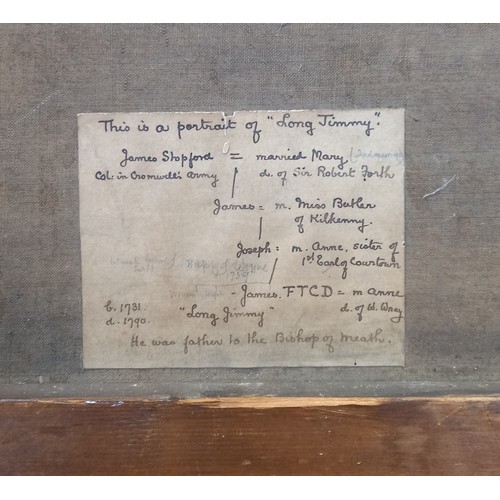 This is a portrait of "Long Jimmy".
James Stopford = married Mary
Col: in Cromwell's Army d. of Sir Robert Forth
James = m. Miss Butler
of Kilkenny.
Joseph = m. Anne, sister of
1st Earl of Courtown
James. FTCD = m Anne
b. 1731. "Long Jimmy" d. of W.
d. 1790.
He was father to the Bishop of Meath.